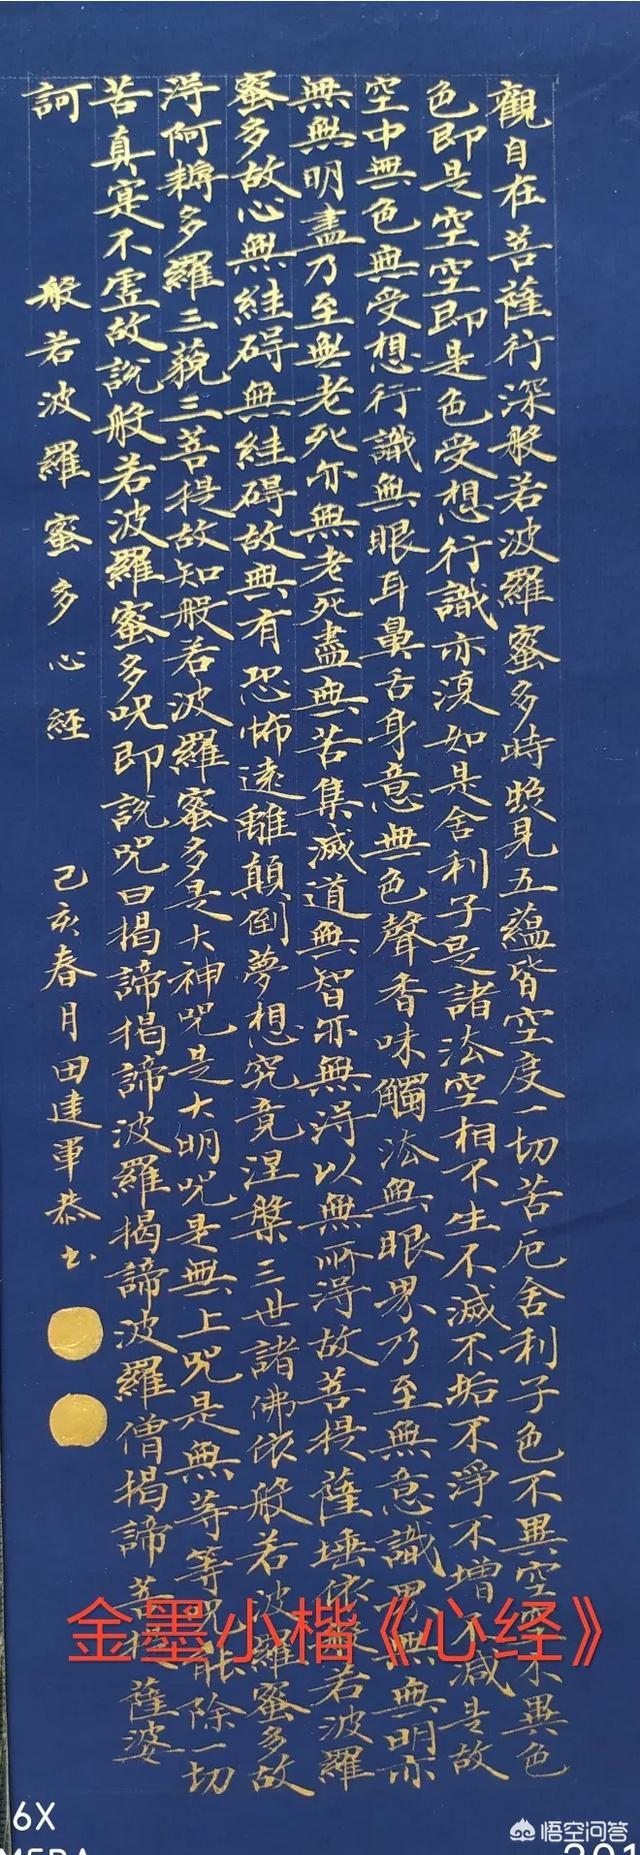 觀自在菩薩行深般若波羅蜜多時照見五蘊皆空度一切苦厄舍利子色不異空空不異色
色即是空空即是色受想行識亦復如是舍利子是諸法空相不生不滅不垢不淨不增不減是故
空中無色無受想行識無眼耳鼻舌身意無色聲香味觸法無眼界乃至無意識界無無明亦
無無明盡乃至無老死亦無老死盡無苦集滅道無智亦無得以無所得故菩提薩埵依般若波羅
蜜多故心無絓碍無絓碍故無有恐怖遠離顛倒夢想究竟涅槃三世諸佛依般若波羅蜜多故
得阿耨多羅三藐三菩提故知般若波羅蜜多是大神咒是大明咒是無上咒是無等等咒能除一切
苦真寔不虛故說般若波羅蜜多咒即說咒曰揭諦揭諦波羅揭諦波羅僧揭諦菩提薩婆
訶
般若波羅蜜多心經
己亥春月田建軍恭书
金墨小楷《心经》
6X
悟空问答